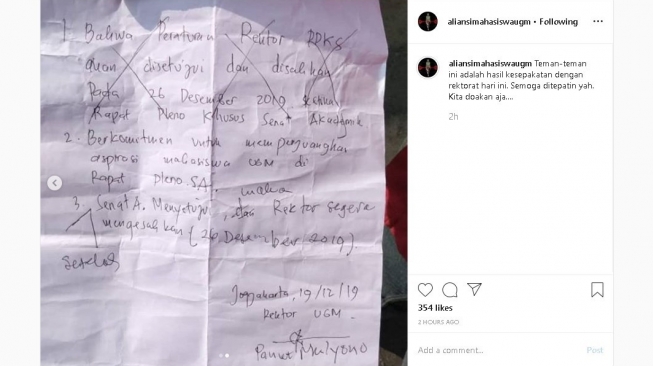 1. Bahwa Peraturan Rektor PPKS
akan disetujui dan disahkan
Pada 26 Desember 2019 ketika
Rapat Pleno Khusus Senat Akademik
2. Berkomitmen untuk memperjuangkan
aspirasi mahasiswa UGM di
Rapat Pleno SA.
maka
3. Senat A. Menyetujui, dan Rektor segera
mengesahkan (26 Desember 2019).
setelah
Jogjakarta, 19/12/19
Rektor UGM.
Panut Mulyono
aliansimahasiswaugm • Following
aliansimahasiswaugm Teman-teman
ini adalah hasil kesepakatan dengan
rektorat hari ini. Semoga ditepatin yah.
Kita doakan aja....
2h
354 likes
2 HOURS AGO
Add a comment... Post